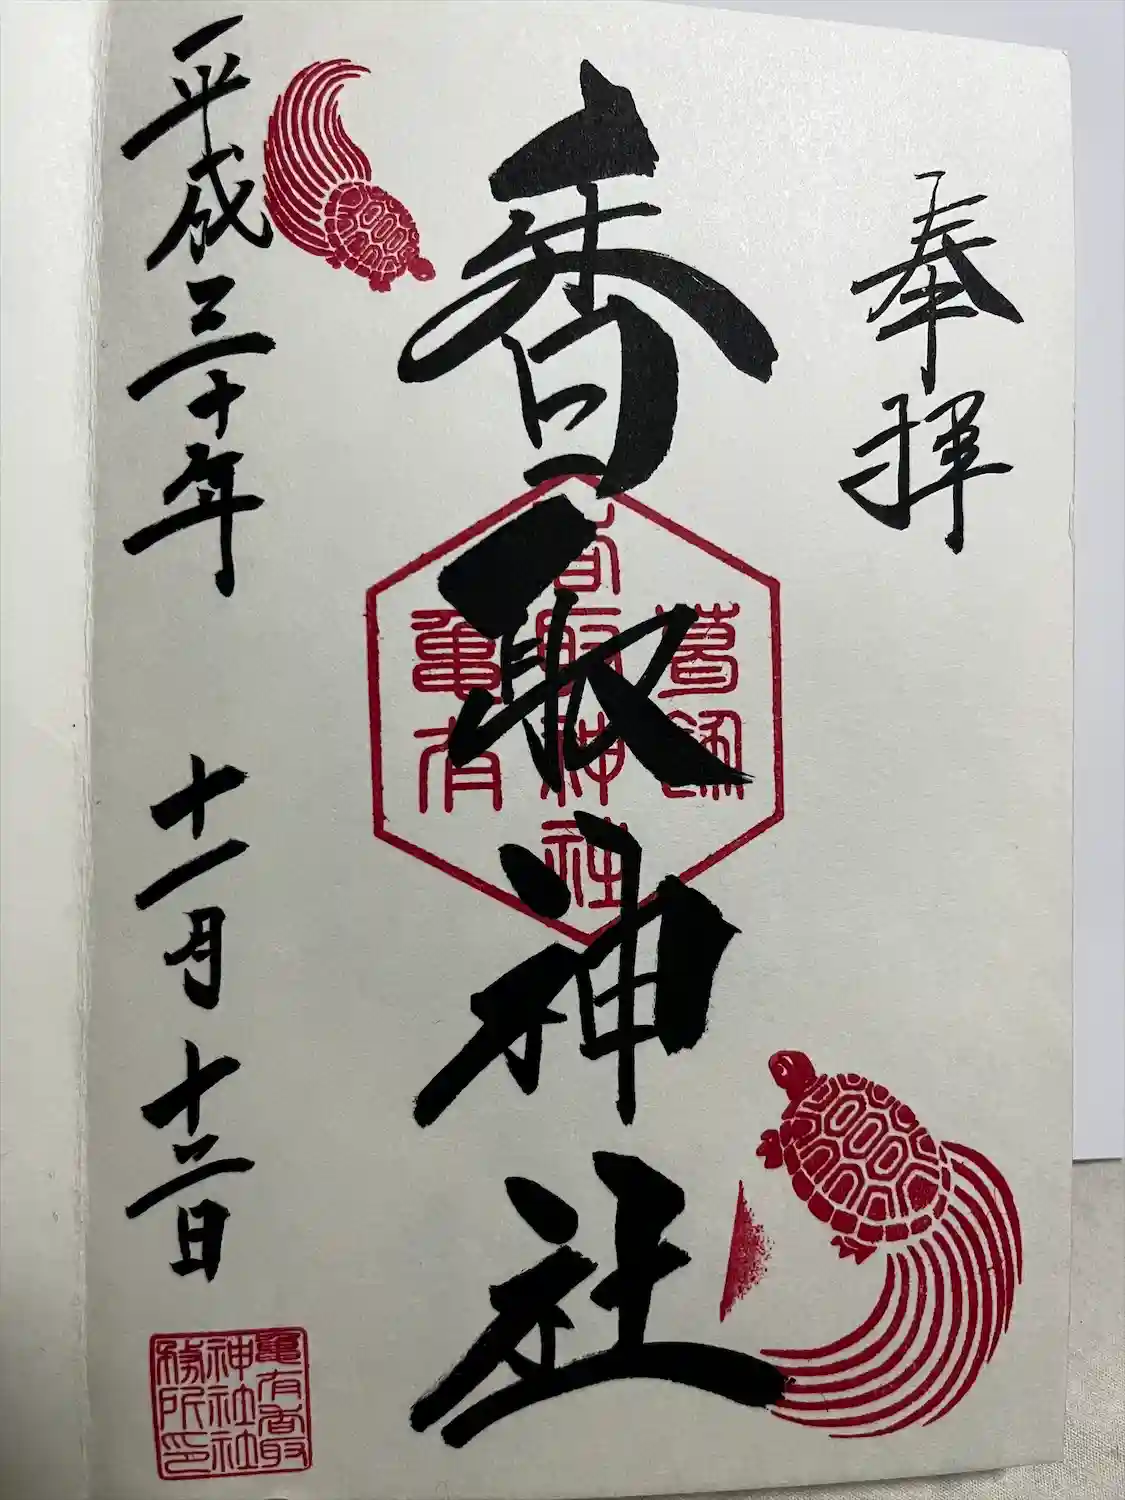 奉拝
葛飾
香取神社
亀有
香取神社
平成三十年 十一月 十二日
亀有香取
神社社
務所印